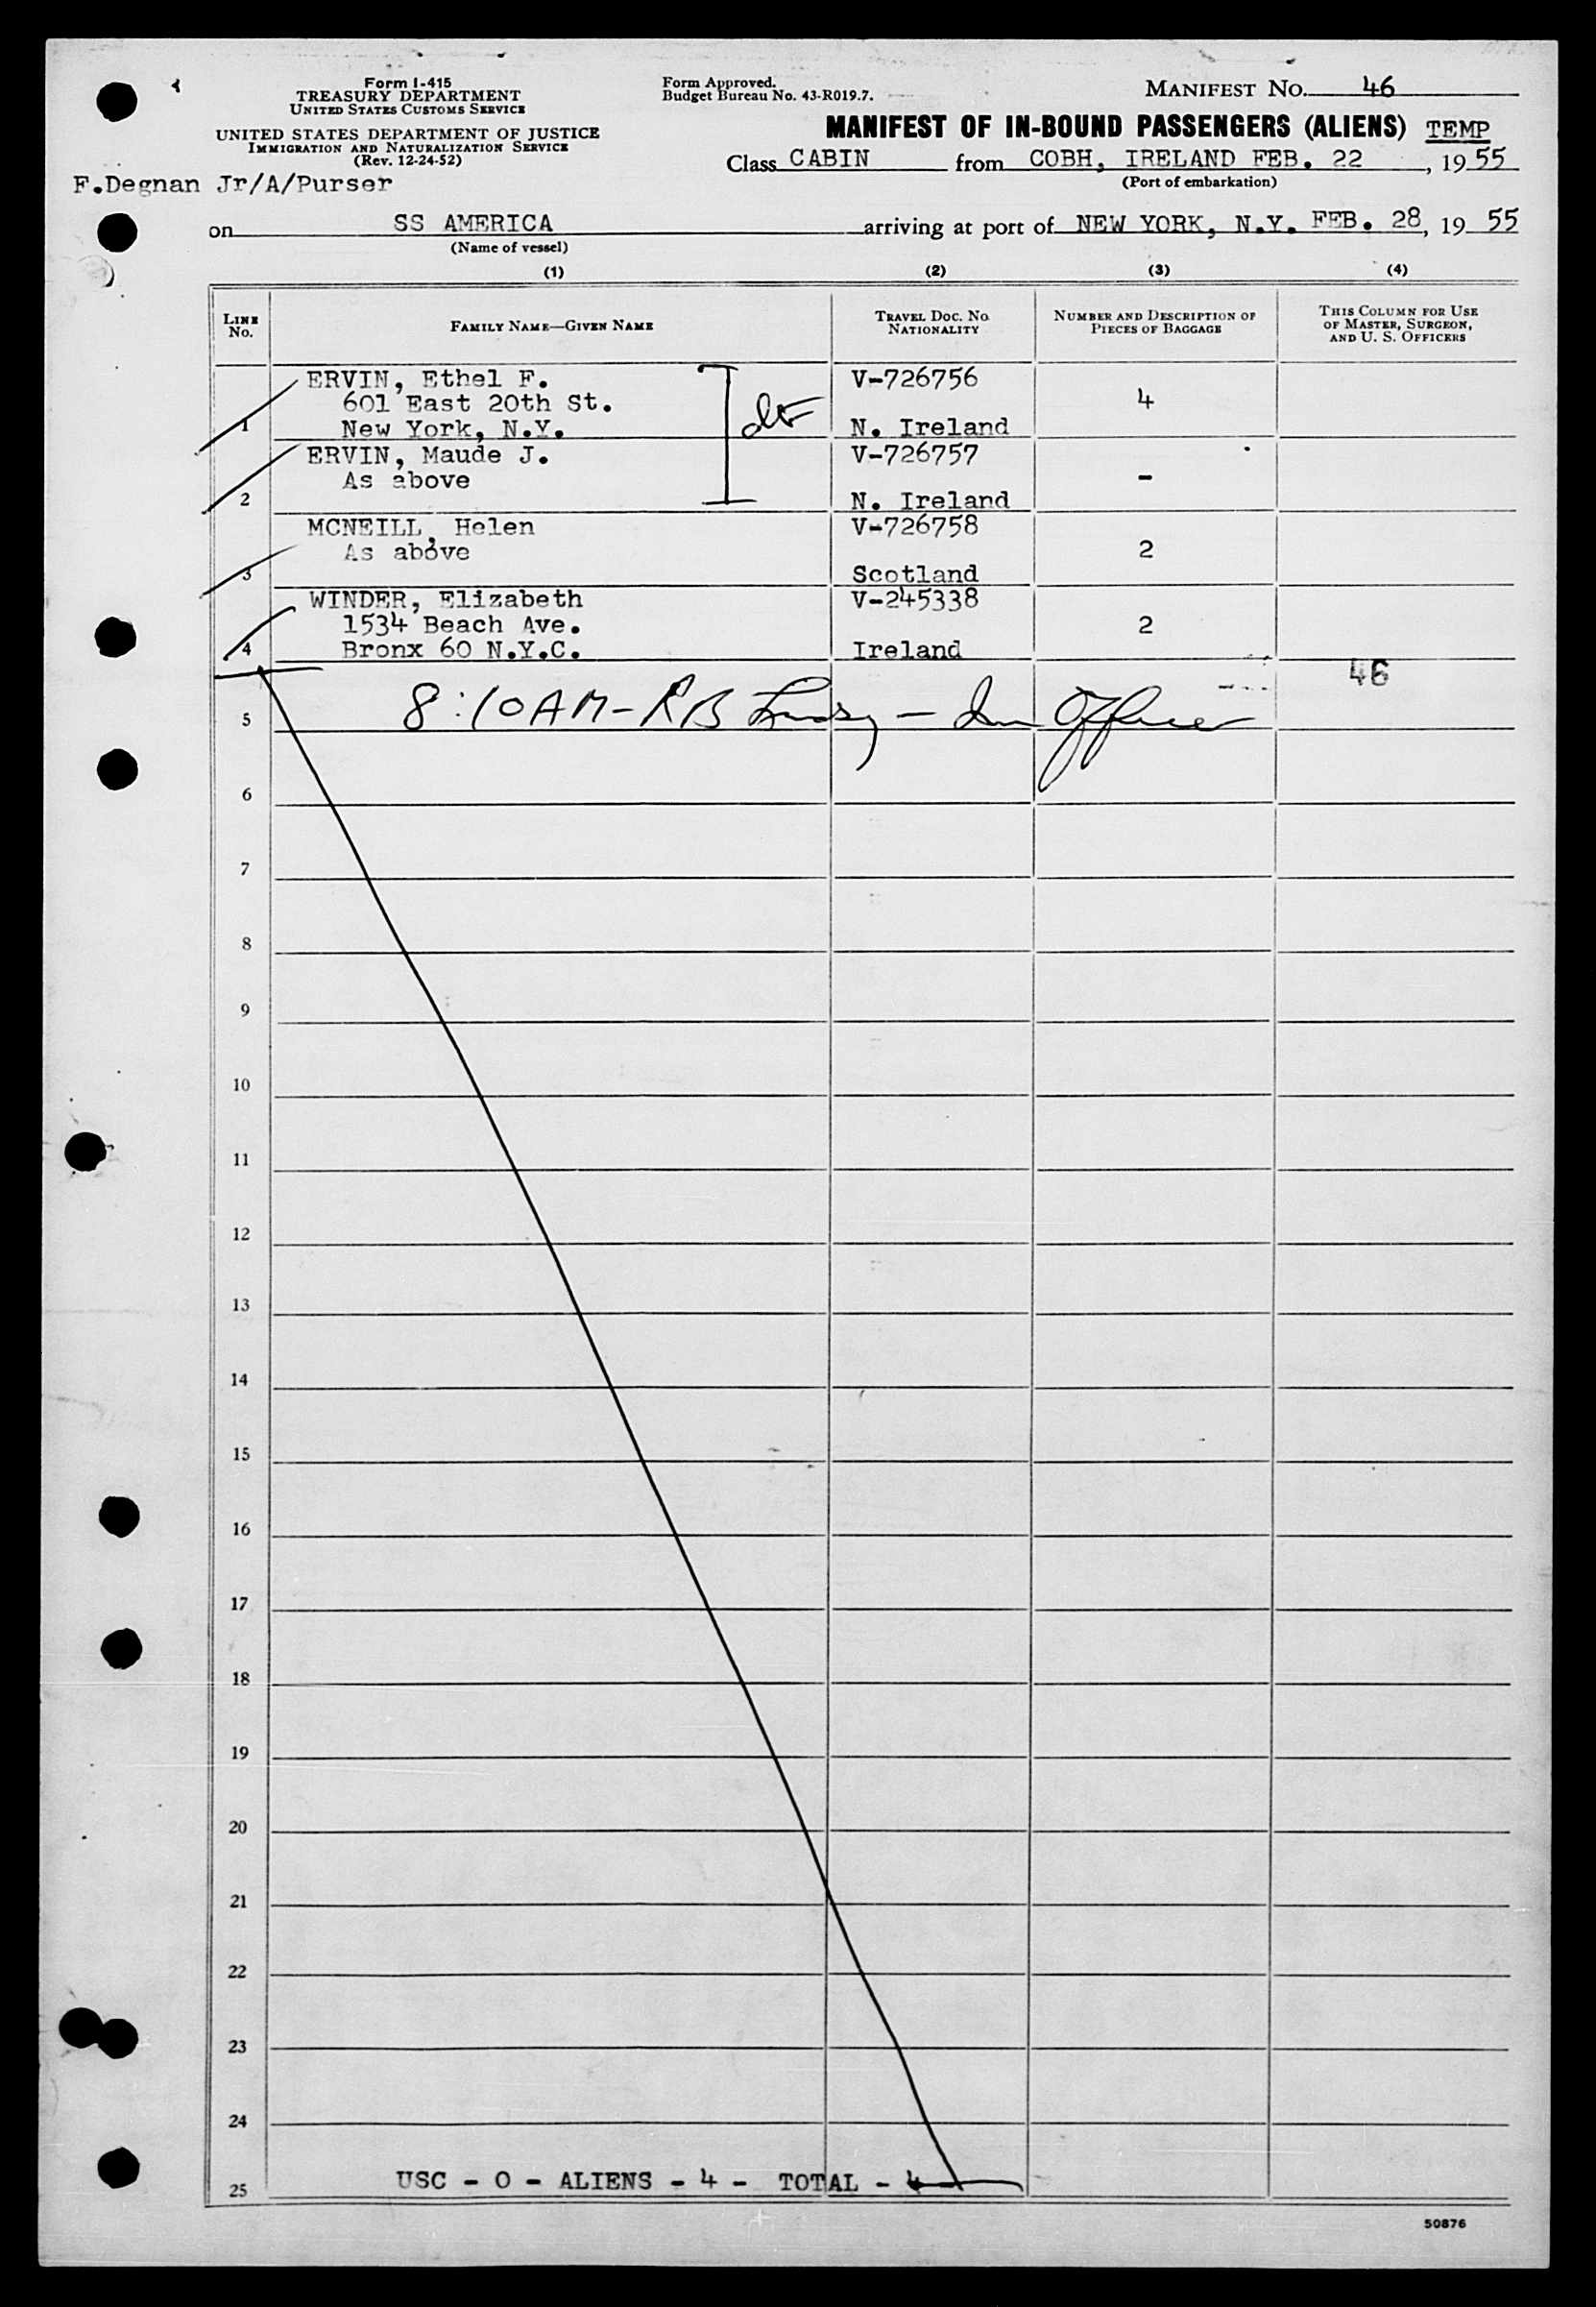 Form I-415
TREASURY DEPARTMENT
UNITED STATES CUSTOMS SERVICE
UNITED STATES DEPARTMENT OF JUSTICE
IMMIGRATION AND NATURALIZATION SERVICE
(Rev. 12-24-52)
F.Degnan Jr/A/Purser
Form Approved.
Budget Bureau No. 43-R019.7.
MANIFEST NO. 46
MANIFEST OF IN-BOUND PASSENGERS (ALIENS) TEMP
Class CABIN from COBH, IRELAND FEB. 22, 1955
(Port of embarkation)
on SS AMERICA arriving at port of NEW YORK, N.Y. FEB. 28, 1955
(Name of vessel)
(1) (2) (3) (4)
LINE No.
FAMILY NAME—GIVEN NAME
TRAVEL DOC. NO.
NATIONALITY
NUMBER AND DESCRIPTION OF
PIECES OF BAGGAGE
THIS COLUMN FOR USE
OF MASTER, SURGEON,
AND U. S. OFFICERS
ERVIN, Ethel F. V-726756
601 East 20th St. 4
1 New York, N.Y. N. Ireland
ERVIN, Maude J. V-726757
As above -
2 N. Ireland
MCNEILL, Helen V-726758
As above 2
3 Scotland
WINDER, Elizabeth V-245338
1534 Beach Ave. 2
4 Bronx 60 N.Y.C. Ireland
46
5 8:10AM - RB - Imm Officer
6
7
8
9
10
11
12
13
14
15
16
17
18
19
20
21
22
23
24
25 USC - 0 - ALIENS - 4 - TOTAL - 4
50876